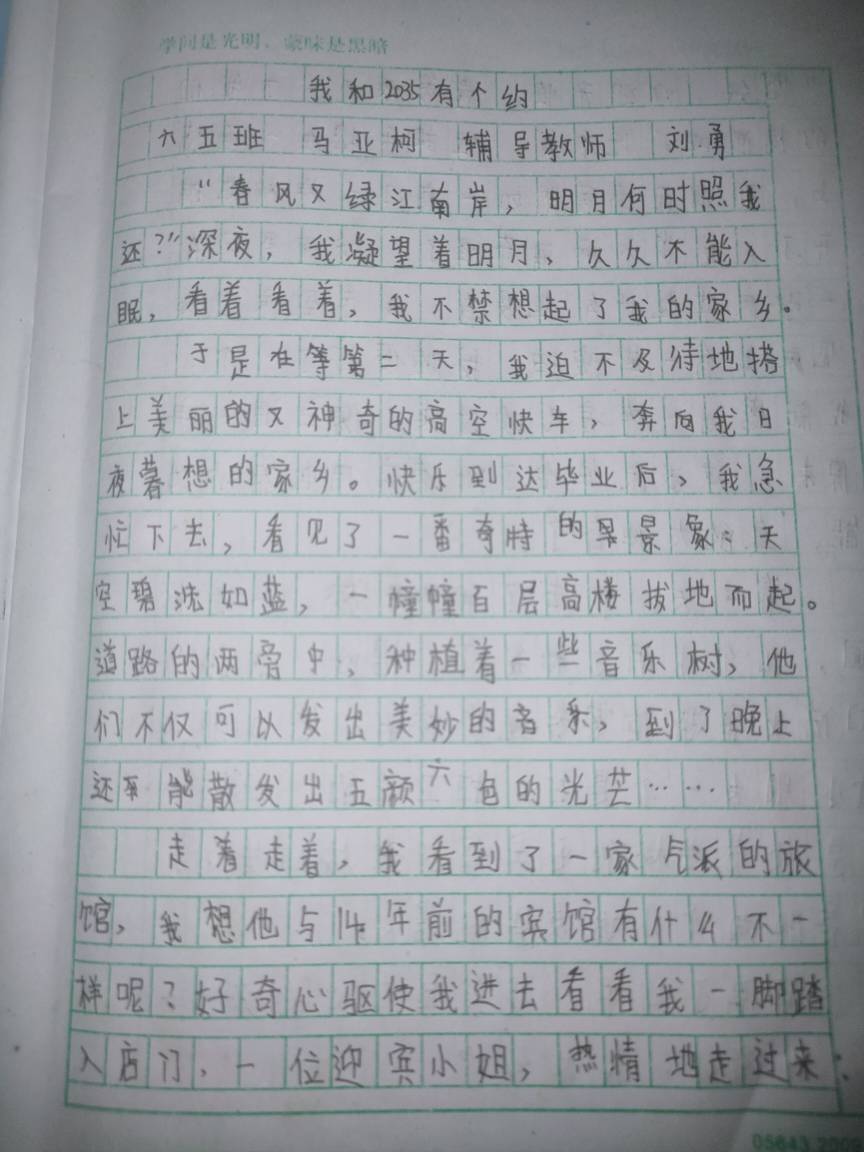 学问是光明，蒙昧是黑暗
我和2035有个约
六五班 马亚柯 辅导教师 刘勇
“春风又绿江南岸，明月何时照我
还？”深夜，我凝望着明月，久久不能入
眠，看着看着，我不禁想起了我的家乡。
于是在等第二天，我迫不及待地搭
上美丽的又神奇的高空快车，奔向我日
夜暮想的家乡。快乐到达毕业后，我急
忙下去，看见了一番奇特的景象：天
空碧洗如蓝，一幢幢百层高楼拔地而起。
道路的两旁中，种植着一些音乐树，他
们不仅可以发出美妙的音乐，到了晚上
还能散发出五颜六色的光芒……
走着走着，我看到了一家气派的旅
馆，我想他与14年前的宾馆有什么不一
样呢？好奇心驱使我进去看看我一脚踏
入店门，一位迎宾小姐，热情地走过来：
05643